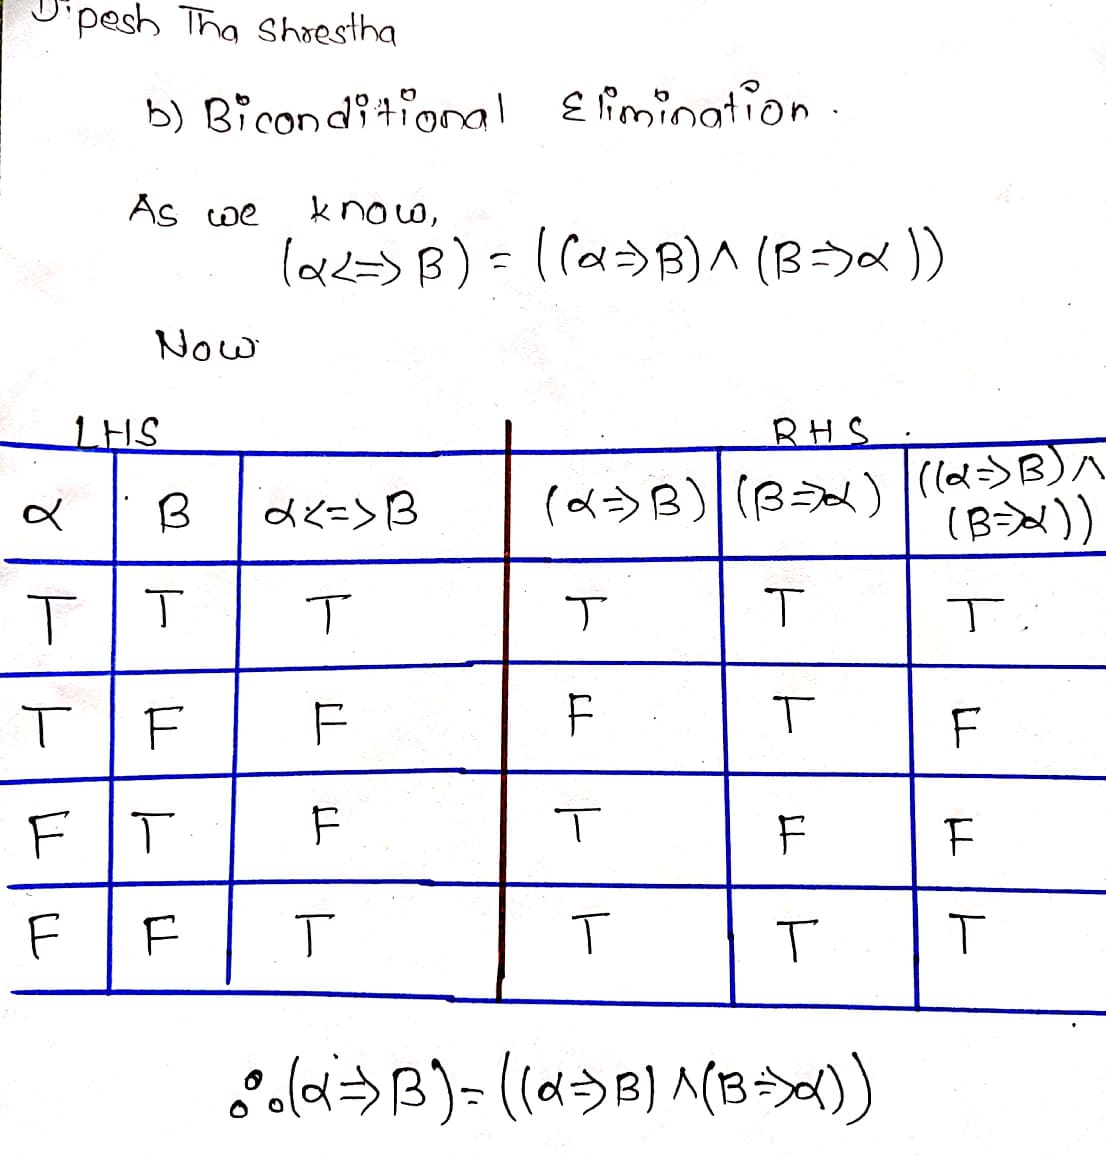 Dipesh Tha Shrestha
b) Biconditional Elimination.
As we know,
(α<=>β) = ((α=>β)∧(β=>α))
Now
LHS RHS
α β α<=>β (α=>β) (β=>α) ((α=>β)∧
(β=>α))
T T T T T T
T F F F T F
F T F T F F
F F T T T T
∴(α=>β)=((α=>β)∧(β=>α))